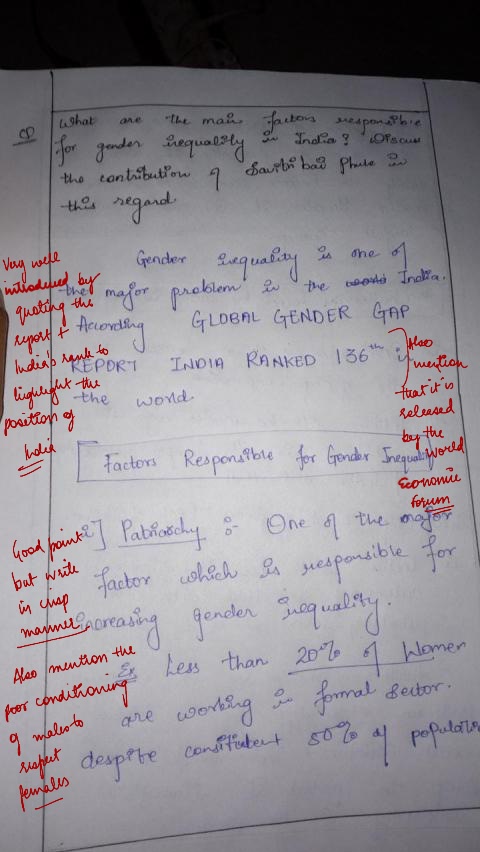 Q
What are the main factors responsible
for gender inequality in India? Discuss
the contribution of Savitri bai Phule in
this regard
Gender inequality is one of
the major problem in the India.
According GLOBAL GENDER GAP
REPORT INDIA RANKED 136th in
the world
Very well
introduced by
quoting the
report +
India's rank to
highlight the
position of
India
Also
mention
that it is
released
by the
World
Economic
Forum
Factors Responsible for Gender Inequality
i] Patriarchy :- One of the major
factor which is responsible for
increasing gender inequality.
Ex Less than 20% of Women
are working in formal sector.
despite constituent 50% of population
Good point
but write
in crisp
manner
Also mention the
poor conditioning
of males to
respect
females